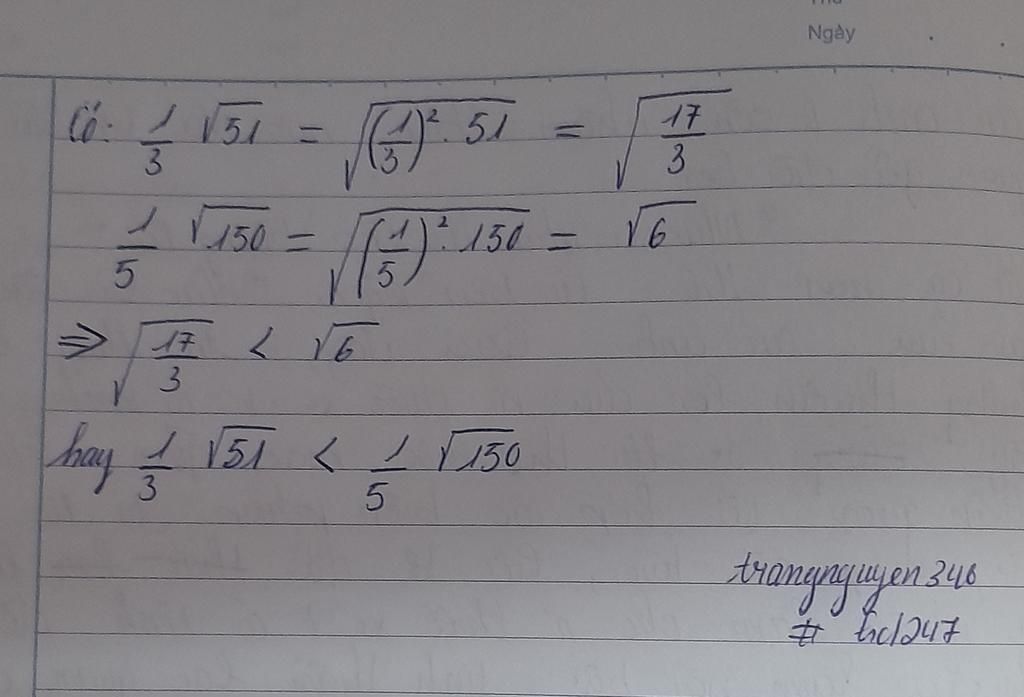 Thứ
Ngày
Có: 1/3 √51 = √((1/3)² . 51) = √(17/3)
1/5 √150 = √((1/5)² . 150) = √6
⇒ √(17/3) < √6
hay 1/3 √51 < 1/5 √150
trangnguyen346
# hc1247